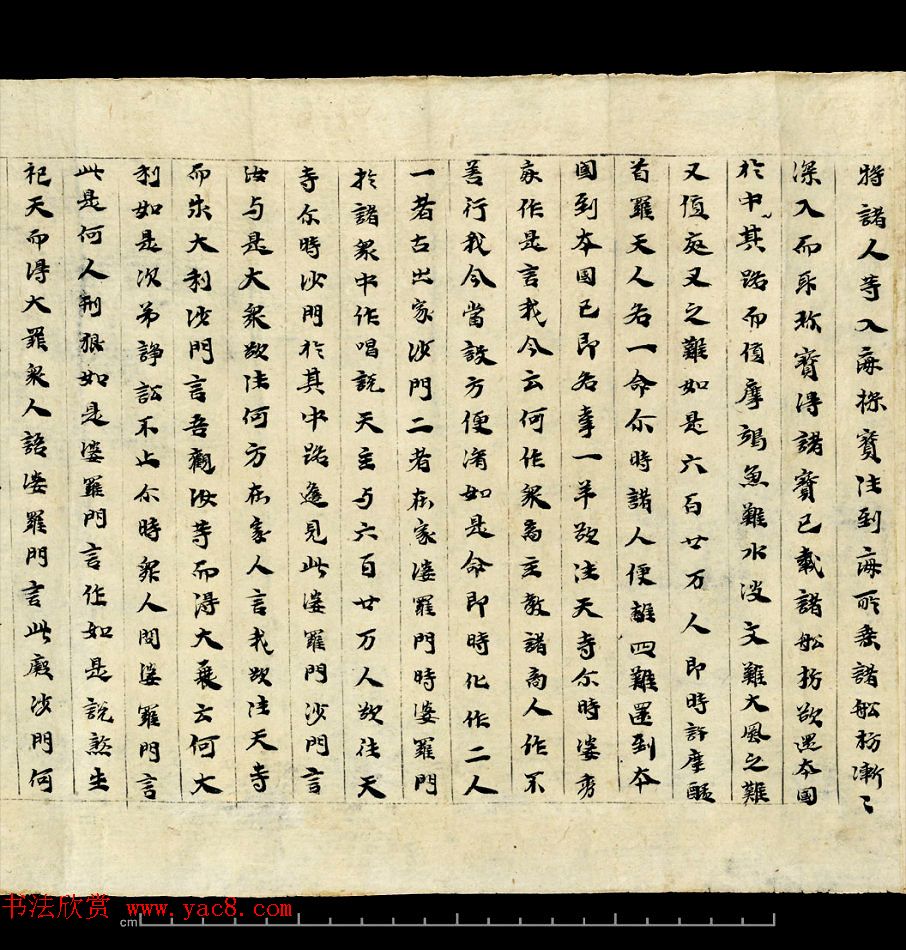 將諸人等入海採寶往到海所乘諸舩舫漸〻
深入而取弥寶得諸寶已載諸舩舫欲還本國
於中其路而值摩竭魚難水波之難大風之難
又值夜叉之難如是六百廿万人即時許摩醯
首羅天人各一命尒時諸人便離四難還到本
國到本國已即各牽一羊欲往天寺尒時婆秀
作是言我今云何作衆商主教諸商人作不
善行我今當設方便濟如是命即時化作二人
一者古出家沙門二者在家婆羅門時婆羅門
於諸衆中作唱說天主与六百廿万人欲往天
寺尒時沙門於其中路逢見此婆羅門沙門言
汝与是大衆欲往何方在家人言我欲往天寺
而求大利沙門言吾觀汝等而得大衰云何大
利如是次弟諍訟不止尒時衆人問婆羅門言
此是何人形狠如是婆羅門言作如是說煞生
祀天而得大罪衆人語婆羅門言此癡沙門何
书法欣赏 www.yac8.com
cm